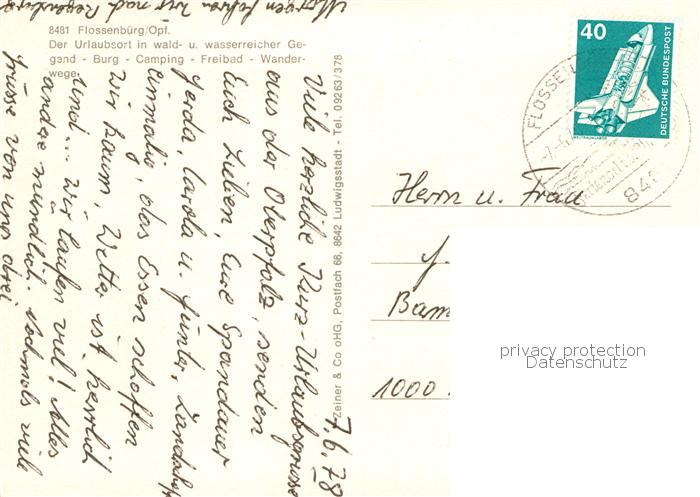 8481 Flossenbürg/Opf.
Der Urlaubsort in wald- u. wasserreicher Ge-
gend - Burg - Camping - Freibad - Wander-
wege.
7.6.78
Viele herzliche Kurz-Urlaubsgrüsse
aus der Oberpfalz, senden
Euch Lieben, Eure Spandauer
Gerda, Carola u. Günter, Landschaft
einmalig, das Essen schaffen
wir kaum, Wetter ist herrlich
und... wir laufen viel! Alles
andere mündlich. Nochmals viele
Grüsse von uns drei
Morgen fahren wir nach Regensburg
Zeiner & Co oHG, Postfach 66, 8642 Ludwigsstadt - Tel. 09263/378
40
DEUTSCHE BUNDESPOST
WELTRAUMLABOR
FLOSSE
848
Herrn u. Frau
J.
Bam
1000
privacy protection
Datenschutz